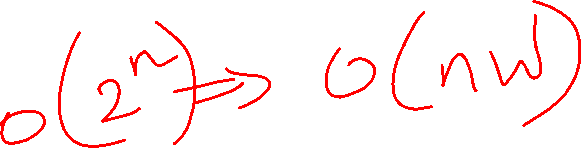 O(2^n) => O(nW)